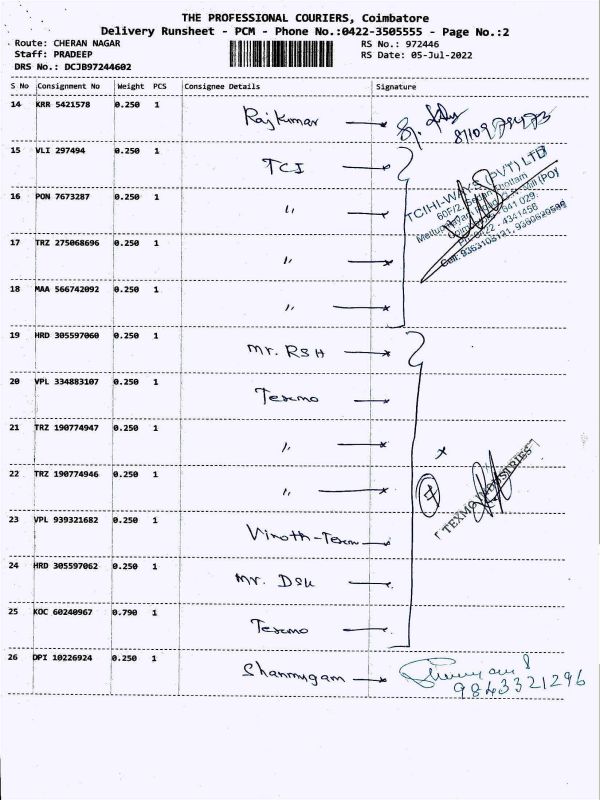 THE PROFESSIONAL COURIERS, Coimbatore
Delivery Runsheet - PCM - Phone No.:0422-3505555 - Page No.:2
Route: CHERAN NAGAR RS No.: 972446
Staff: PRADEEP RS Date: 05-Jul-2022
DRS No.: DCJB97244602
S No Consignment No Weight PCS Consignee Details Signature
14 KRR 5421578 0.250 1 Rajkumar
15 VLI 297494 0.250 1 TCI
16 PON 7673287 0.250 1 〃
17 TRZ 275068696 0.250 1 〃
18 MAA 566742092 0.250 1 〃
TCIHI-WAYS (PVT) LTD
19 HRD 305597060 0.250 1 Mr. RSH
20 VPL 334883107 0.250 1 Texmo
21 TRZ 190774947 0.250 1 〃
22 TRZ 190774946 0.250 1 〃
23 VPL 939321682 0.250 1 Vinoth-Texm
24 HRD 305597062 0.250 1 Mr. DSK
25 KOC 60240967 0.790 1 Texmo
TEXMO INDUSTRIES
26 DPI 10226924 0.250 1 Shanmugam
9843321296